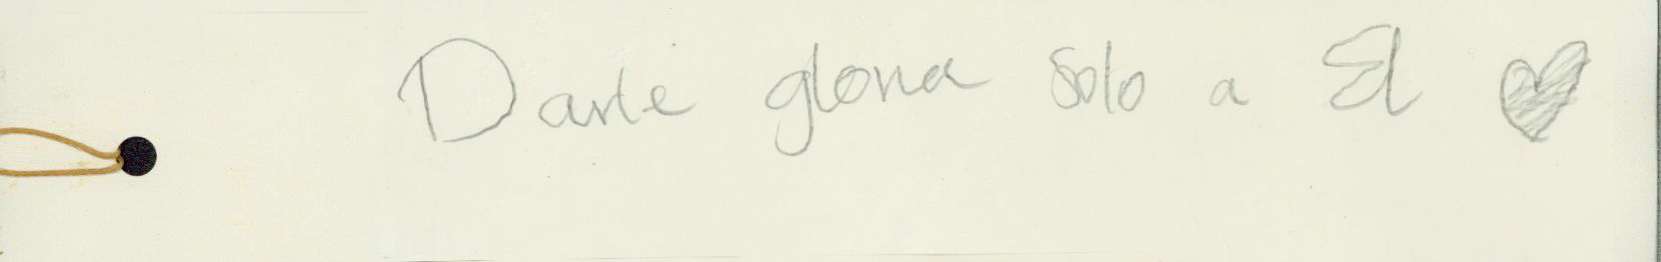 Darle gloria solo a El ♥